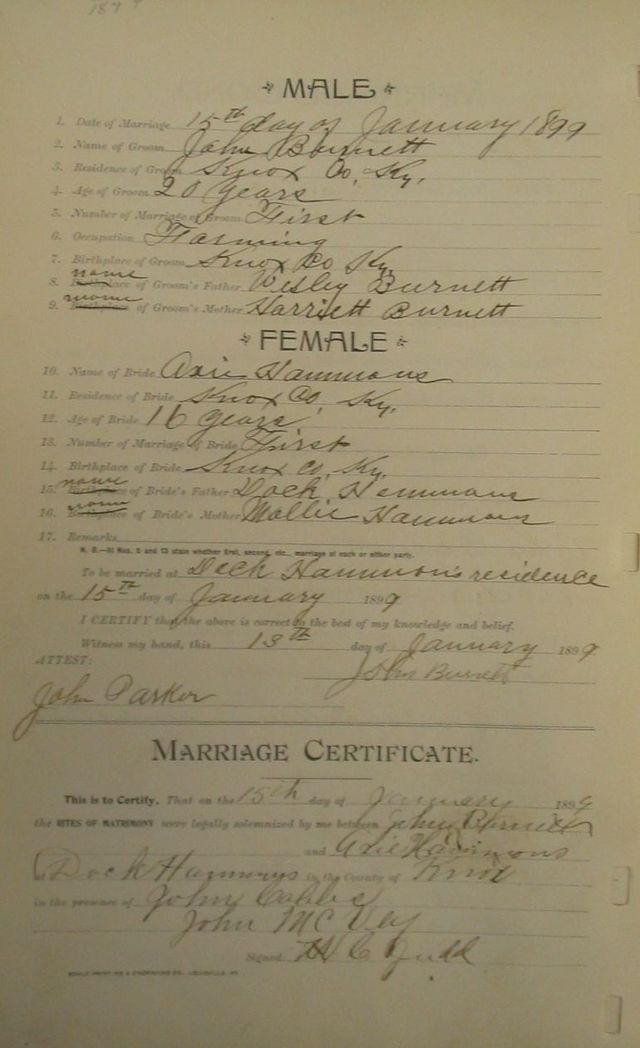 MALE
1. Date of Marriage 15th day of January 1899
2. Name of Groom John Burnett
3. Residence of Groom Knox Co, Ky.
4. Age of Groom 20 years
5. Number of Marriage of Groom First
6. Occupation Farming
7. Birthplace of Groom Knox Co Ky,
8. name of Groom's Father Wesley Burnett
9. name of Groom's Mother Harriett Burnett
FEMALE
10. Name of Bride Axie Hammons
11. Residence of Bride Knox Co, Ky.
12. Age of Bride 16 years
13. Number of Marriage of Bride First
14. Birthplace of Bride Knox Co, Ky.
15. name of Bride's Father Dock Hammons
16. name of Bride's Mother Mollie Hammons
17. Remarks
N. B.—At Nos. 5 and 13 state whether first, second, etc., marriage of each or either party.
To be married at Dock Hammon's residence
on the 15th day of January 1899
I CERTIFY that the above is correct to the best of my knowledge and belief.
Witness my hand, this 13th day of January 1899
ATTEST: John Burnett
John Parker
MARRIAGE CERTIFICATE.
This is to Certify, That on the 15th day of January 1899
the RITES OF MATRIMONY were legally solemnized by me between John Burnett
and Axie Hammons
at Dock Hammons in the County of Knox
in the presence of John
John McVey
Signed Judd